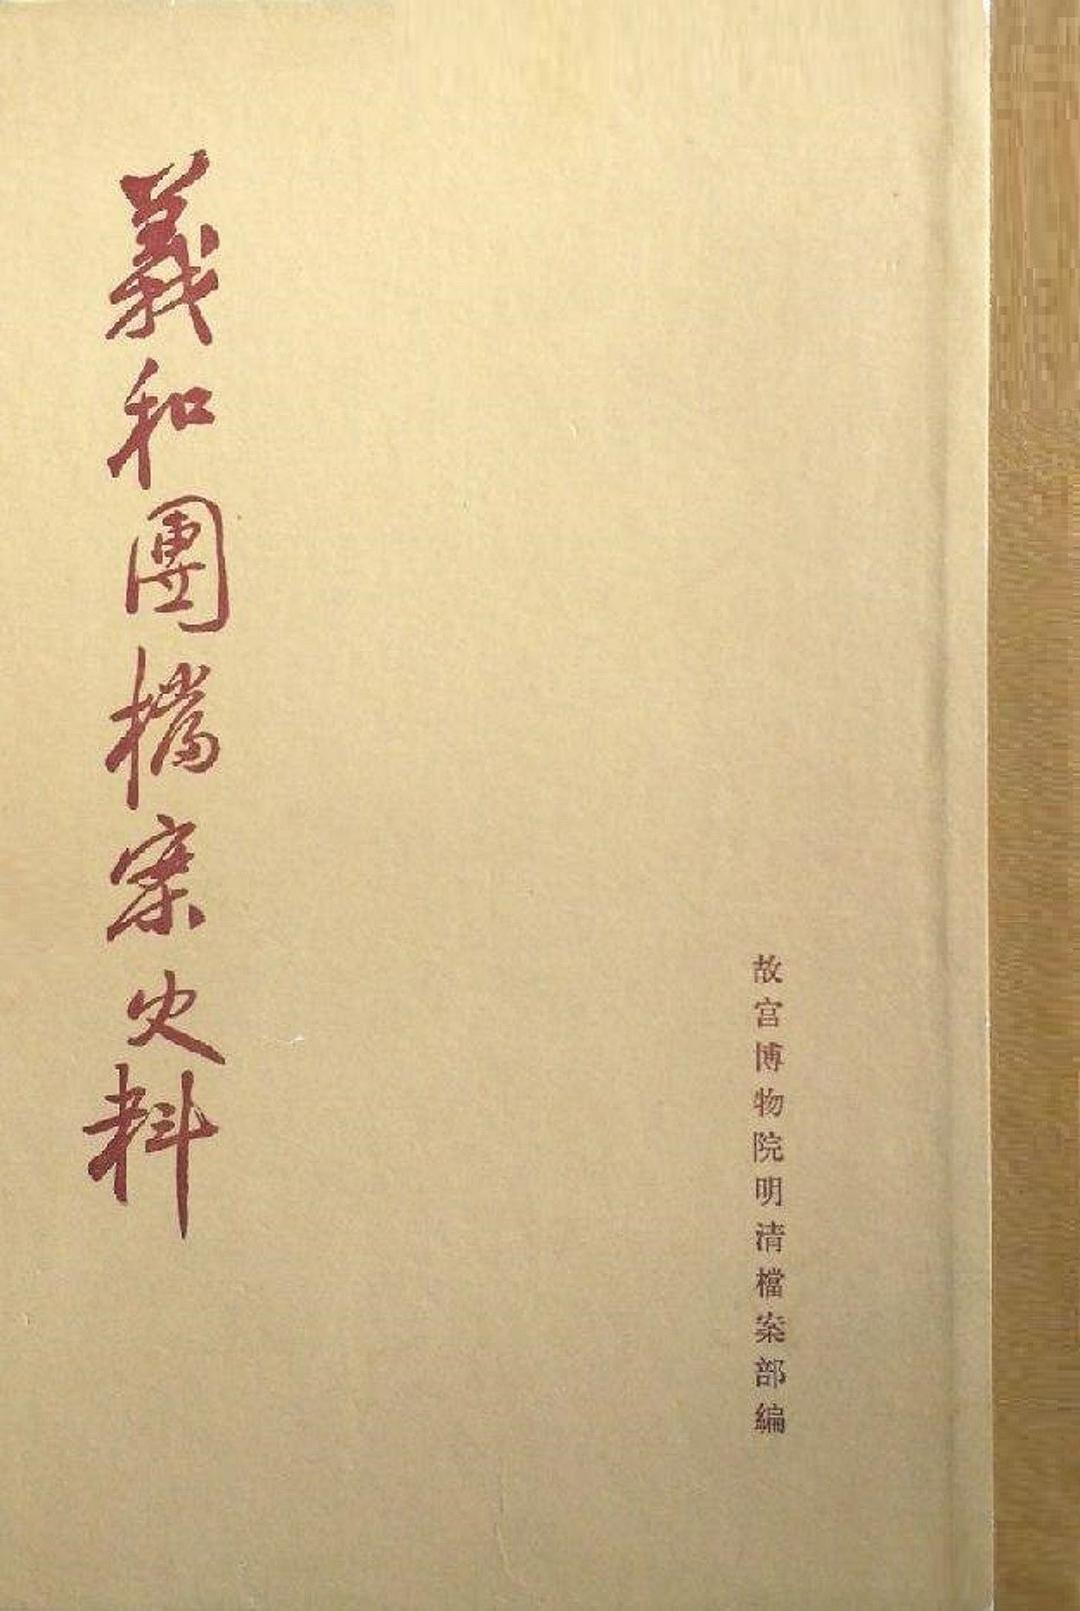 義和團檔案史料
故宫博物院明清檔案部編